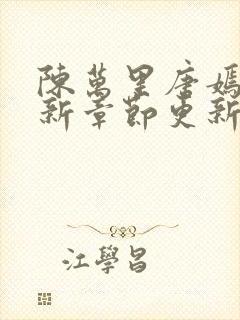 陳萬里唐嫣
新章節更新
江學昌